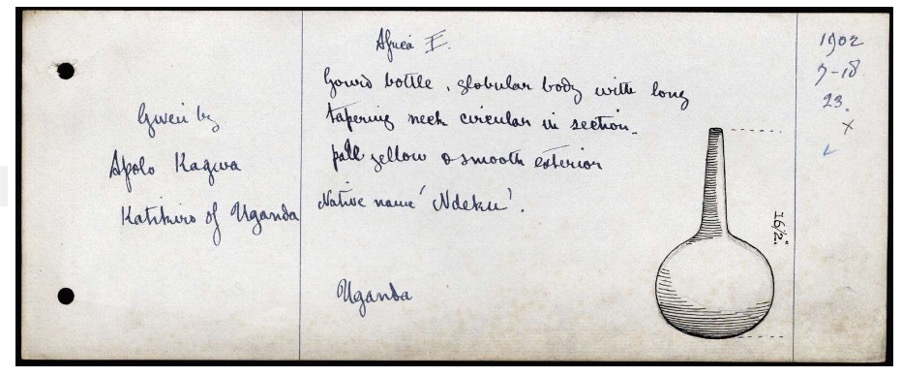 Given by
Apolo Kagwa
Katikiro of Uganda
Africa E.
Gourd bottle, globular body with long
tapering neck circular in section.
pale yellow & smooth exterior
Native name 'Ndeku'.
Uganda
16½"
1902
7-18
23.